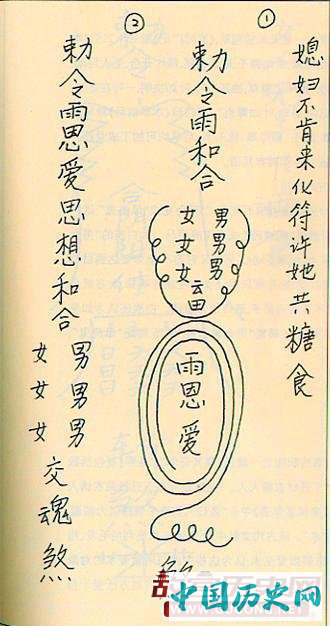 ①
媳妇不肯来化符许她共糖食
勅令雨和合
男男男
女女女
雲
雨恩爱
②
勅令雨恩爱思想和合
男男男
女女女
交魂煞
中国历史网